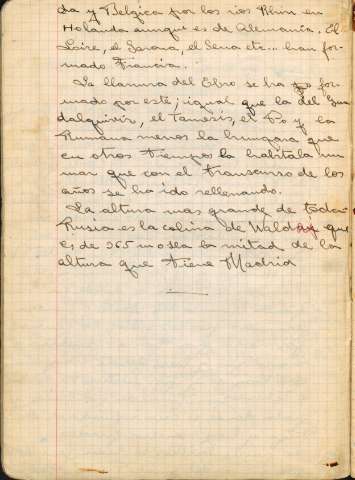 da y Belgica por los rios Rhin en
Holanda aunque es de Alemania. El
Loire, el Garona, el Sena etc... han for
mado Francia.
La llanura del Ebro se ha for
mado por este; igual que la del Gua
dalquivir, el Tamesis, el Po y la
Rumana menos la hungara que
en otros tiempos la habitaba un
mar que con el transcurso de los
años se ha ido rellenando.
La altura mas grande de toda
Rusia es la colina de Waldai que
es de 365 m o sea la mitad de la
altura que tiene Madrid